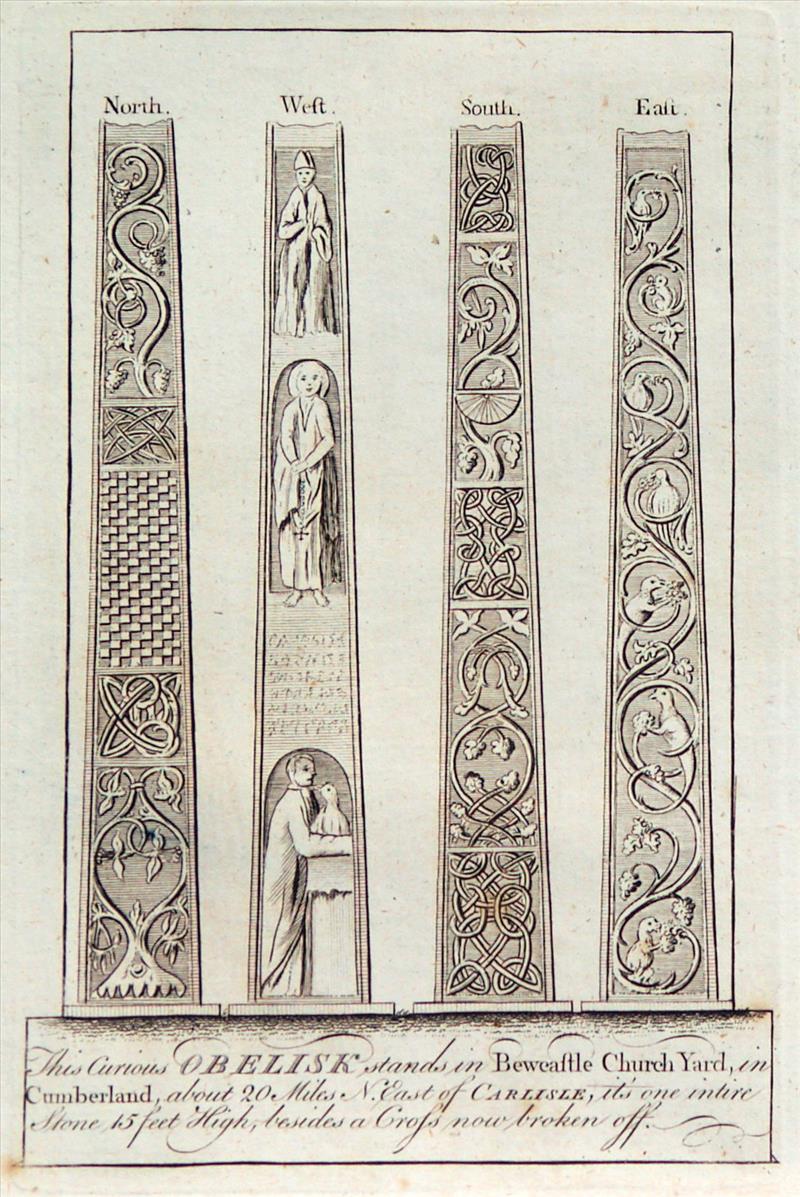 North.
Weſt.
South.
Eaſt.
This Curious OBELISK stands in Bewcaſtle Church Yard, in
Cumberland, about 20 Miles N. East of CARLISLE, it's one intire
Stone 15 feet High, besides a Croſs now broken off.